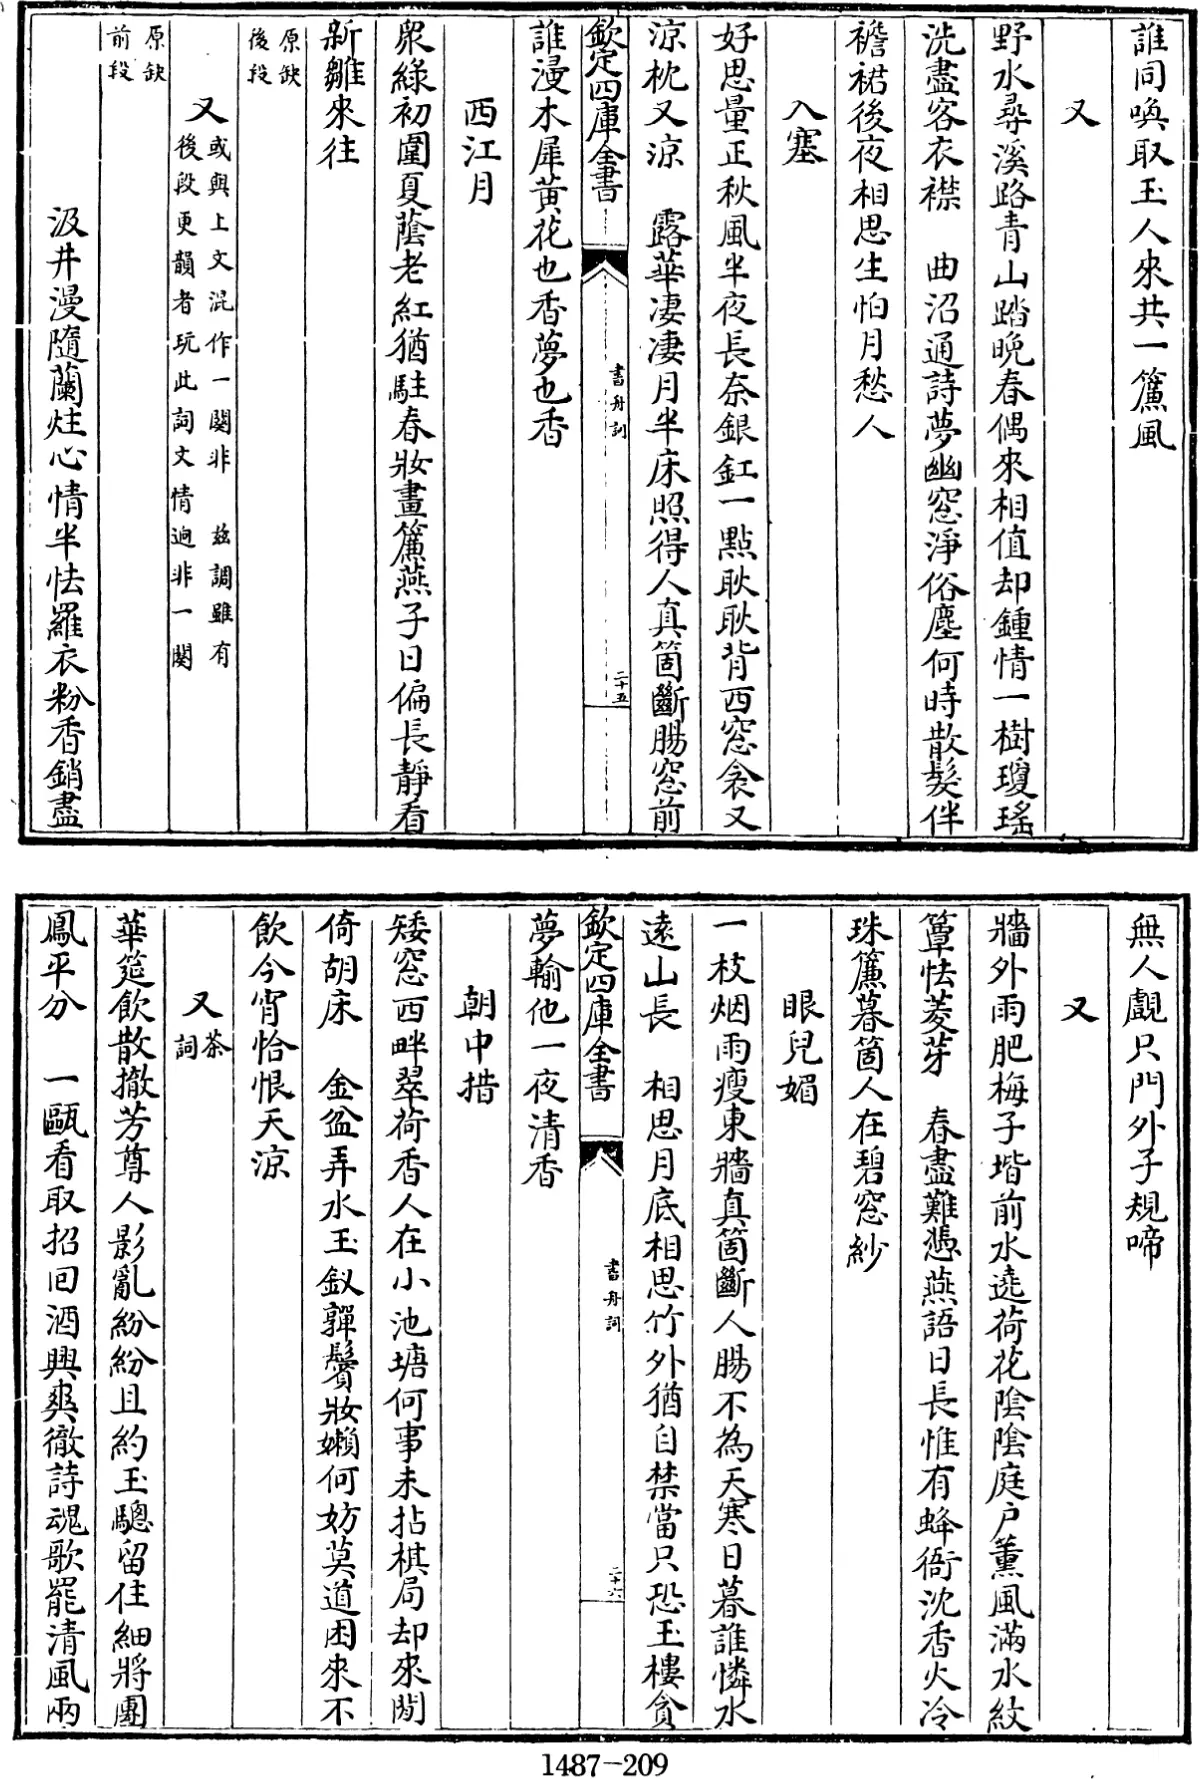 誰同喚取玉人來共一簾風
又
野水尋溪路青山踏晚春偶來相值却鍾情一樹瓊瑤
洗盡客衣襟　曲沼通詩夢幽窓淨俗塵何時散髮伴
襜裙後夜相思生怕月愁人
入塞
好思量正秋風半夜長奈銀釭一點耿耿背西窓衾又
涼枕又涼　露華凄凄月半床照得人真箇斷腸窓前
欽定四庫全書
書舟詞
二十五
誰漫木犀黃花也香夢也香
西江月
衆綠初圍夏蔭老紅猶駐春妝畫簾燕子日偏長靜看
新雛來往
原缺
後段
又
或與上文混作一闋非　兹調雖有
後段更韻者玩此詞文情逈非一闋
原缺
前段
汲井漫隨蘭炷心情半怯羅衣粉香銷盡
無人覷只門外子規啼
又
牆外雨肥梅子堦前水遶荷花陰陰庭户薰風滿水紋
簟怯菱芽　春盡難憑燕語日長惟有蜂衙沈香火冷
珠簾暮箇人在碧窓紗
眼兒媚
一枝烟雨瘦東牆真箇斷人腸不為天寒日暮誰憐水
遠山長　相思月底相思竹外猶自禁當只恐玉樓貪
欽定四庫全書
書舟詞
二十六
夢輸他一夜清香
朝中措
矮窓西畔翠荷香人在小池塘何事未拈棋局却來閒
倚胡床　金盆弄水玉釵嚲鬢妝嬾何妨莫道困來不
飲今宵恰恨天涼
又
茶
詞
華筵飲散撤芳尊人影亂紛紛且約玉驄留住細將團
鳳平分　一甌看取招回酒興爽徹詩魂歌罷清風兩
1487-209